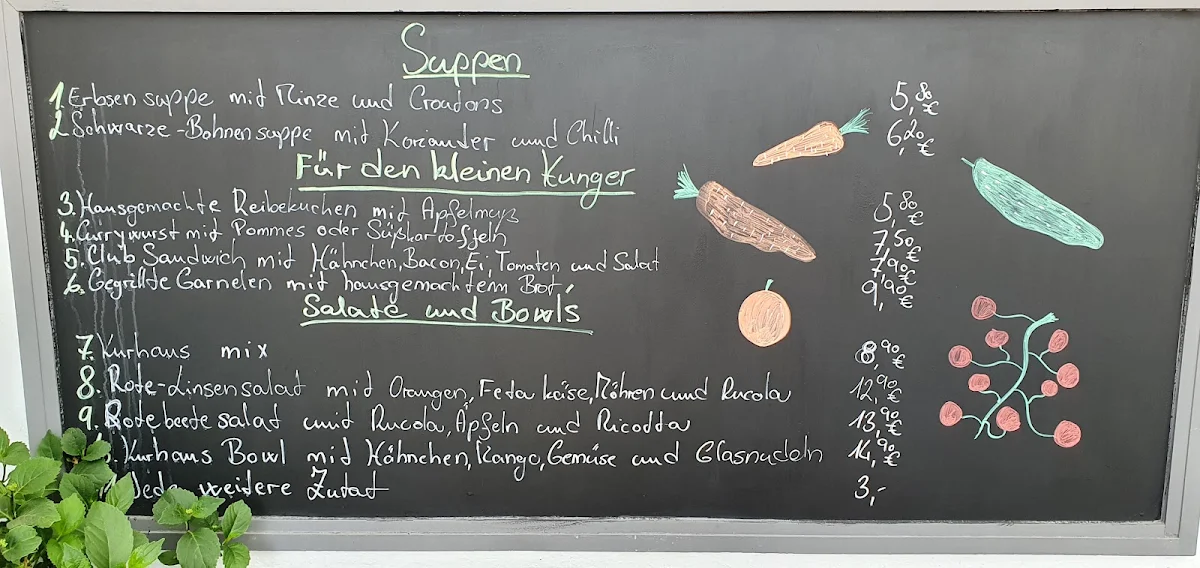 Suppen
1. Erbsensuppe mit Minze und Croutons 5,80 €
2. Schwarze-Bohnensuppe mit Koriander und Chilli 6,20 €
Für den kleinen Hunger
3. Hausgemachte Reibekuchen mit Apfelmuß 5,80 €
4. Currywurst mit Pommes oder Süßkartoffeln 7,50 €
5. Club Sandwich mit Hähnchen, Bacon, Ei, Tomaten und Salat 7,90 €
6. Gegrillte Garnelen mit hausgemachtem Brot 9,90 €
Salate und Bowls
7. Kurhaus mix 8,90 €
8. Rote-Linsensalat mit Orangen, Feta käse, Möhren und Rucola 12,90 €
9. Rote beete salat mit Rucola, Äpfeln und Ricotta 13,90 €
Kurhaus Bowl mit Hähnchen, Mango, Gemüse und Glasnudeln 14,90 €
Jede weitere Zutat 3,-